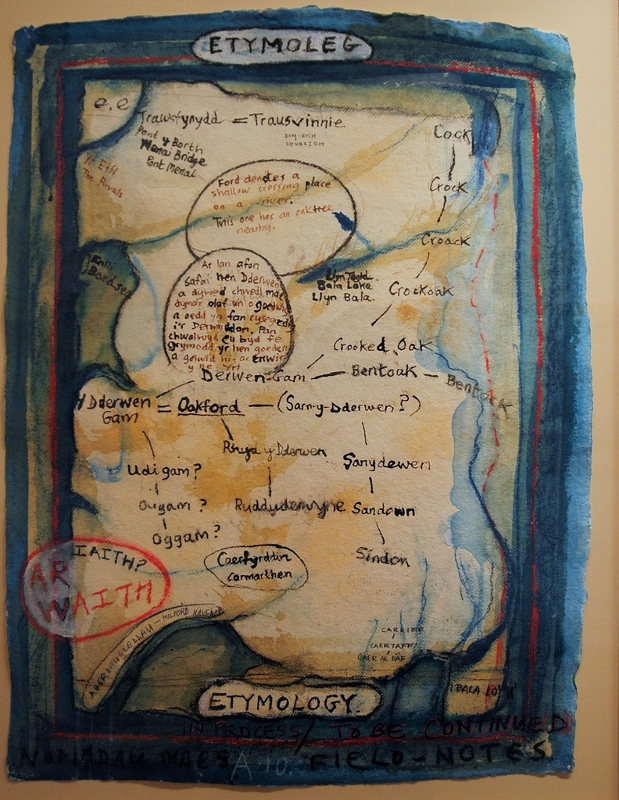 ETYMOLEG
e.e
Trawsfynydd = Trausvinnie
Pont y Borth
Menai Bridge
Pont Menai
Yr Eifl
The Rivals
Cock
Crock
Croack
Crockoak
Crooked Oak
Ford denotes a
shallow crossing place
on a river.
This one has an oaktree
nearby.
Enlli
Bardsey
Bala Lake
Llyn Bala.
Ar lan afon
safai hen Dderwen
a dywed chwedl mai
dyma'r olaf un o goedwig
a oedd yn fan cysegredig
i'r Derwyddon. Pan
chwalwyd eu byd fe
grymodd yr hen goeden
a gelwid hi
Derwen-Gam
Bentoak
Bentock
Dderwen
Gam = Oakford — (Sarn-y-Dderwen?)
Rhyd y Dderwen
Udigam?
Sarnydewen
Ougam?
Rudduderwyne
Sandown
Oggam?
Sindon
Caerfyrddin
Carmarthen
IAITH?
AR
WAITH
ABERDAUGLEDDAU — MILFORD HAVEN
CARDIFF
CAERTAFF
CAER AR DAF
ETYMOLOGY
IN PROCESS / TO BE CONTINUED
NODIADAU MAES A.10. FIELD-NOTES.